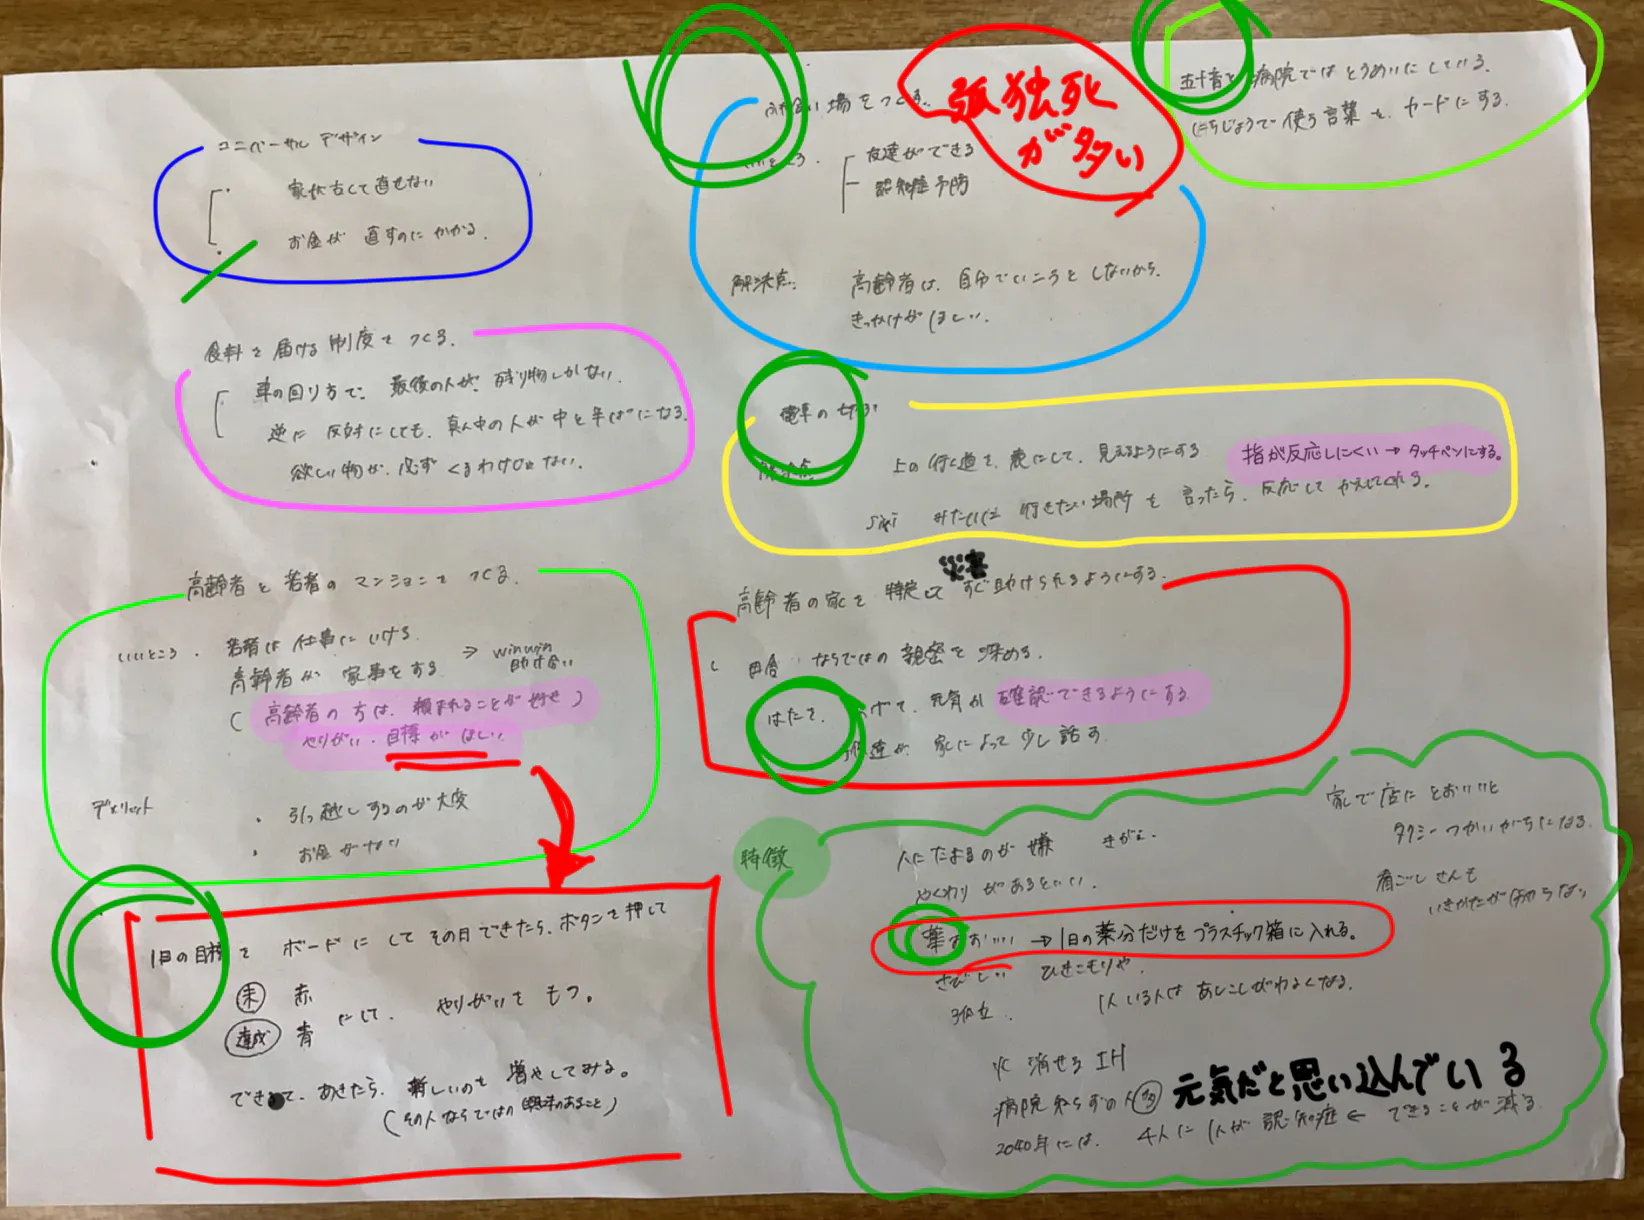 ユニバーサルデザイン
家が古くて直せない
お金が直すのにかかる。
食料を届ける制度をつくる。
車の回り方で、最後の人が、残り物しかない。
逆に反対にしても、真ん中の人が中と半ぱになる。
欲しい物が、必ずくるわけじゃない。
高齢者と若者のマンションをつくる。
いいところ. 若者は仕事にいける
高齢者が家事をする → winwin
助け合い
(高齢者の方は、頼まれることが好き)
やりがい・目標がほしい
デメリット
・引っ越しするのが大変
・お金がない
1日の目標をボードにしてその日できたら、ボタンを押して
未 赤
達成 青
にして、やりがいをもつ。
できて、あきたら、新しいのを増やしてみる。
(その人ならではの興味のあること)
場をつくる。
孤独死
が多い
友達ができる
認知症予防
解決点:
高齢者は、自分でいこうとしないから、
きっかけがほしい。
五十音を病院ではとうめいにしている。
にちじょうで使う言葉を、カードにする。
電車の切ぷ
上の行く道を、表にして、見えるようにする
指が反応しにくい→タッチペンにする。
siri みたいに行きたい場所を言ったら、反応してかえしてくれる。
災害
高齢者の家を特定してすぐ助けられるようにする。
田舎ならではの親密を深める。
はたを、あげて、元気か確認できるようにする。
家によって少し話す
特徴
人にたよるのが嫌
やくわりがあるといい。
薬がおおい →1日の薬分だけをプラスチック箱に入れる。
さびしい ひきこもりや、
孤立. 1人いる人はあしこしがわるくなる。
火消せるIH
病院知らずの人多
元気だと思い込んでいる
2040年には、4人に1人が認知症 ← できることが減る
家で店にとおいいと
タクシーつかいがちになる。
着ごしせんも
いきかたが分からない